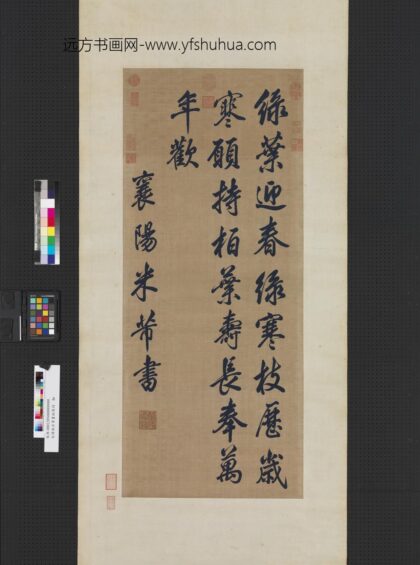 远方书画网-www.yfshuhua.com
綠葉迎春綠寒枝歷歲
寒願持柏葉壽長奉萬
年歡
襄陽米芾書